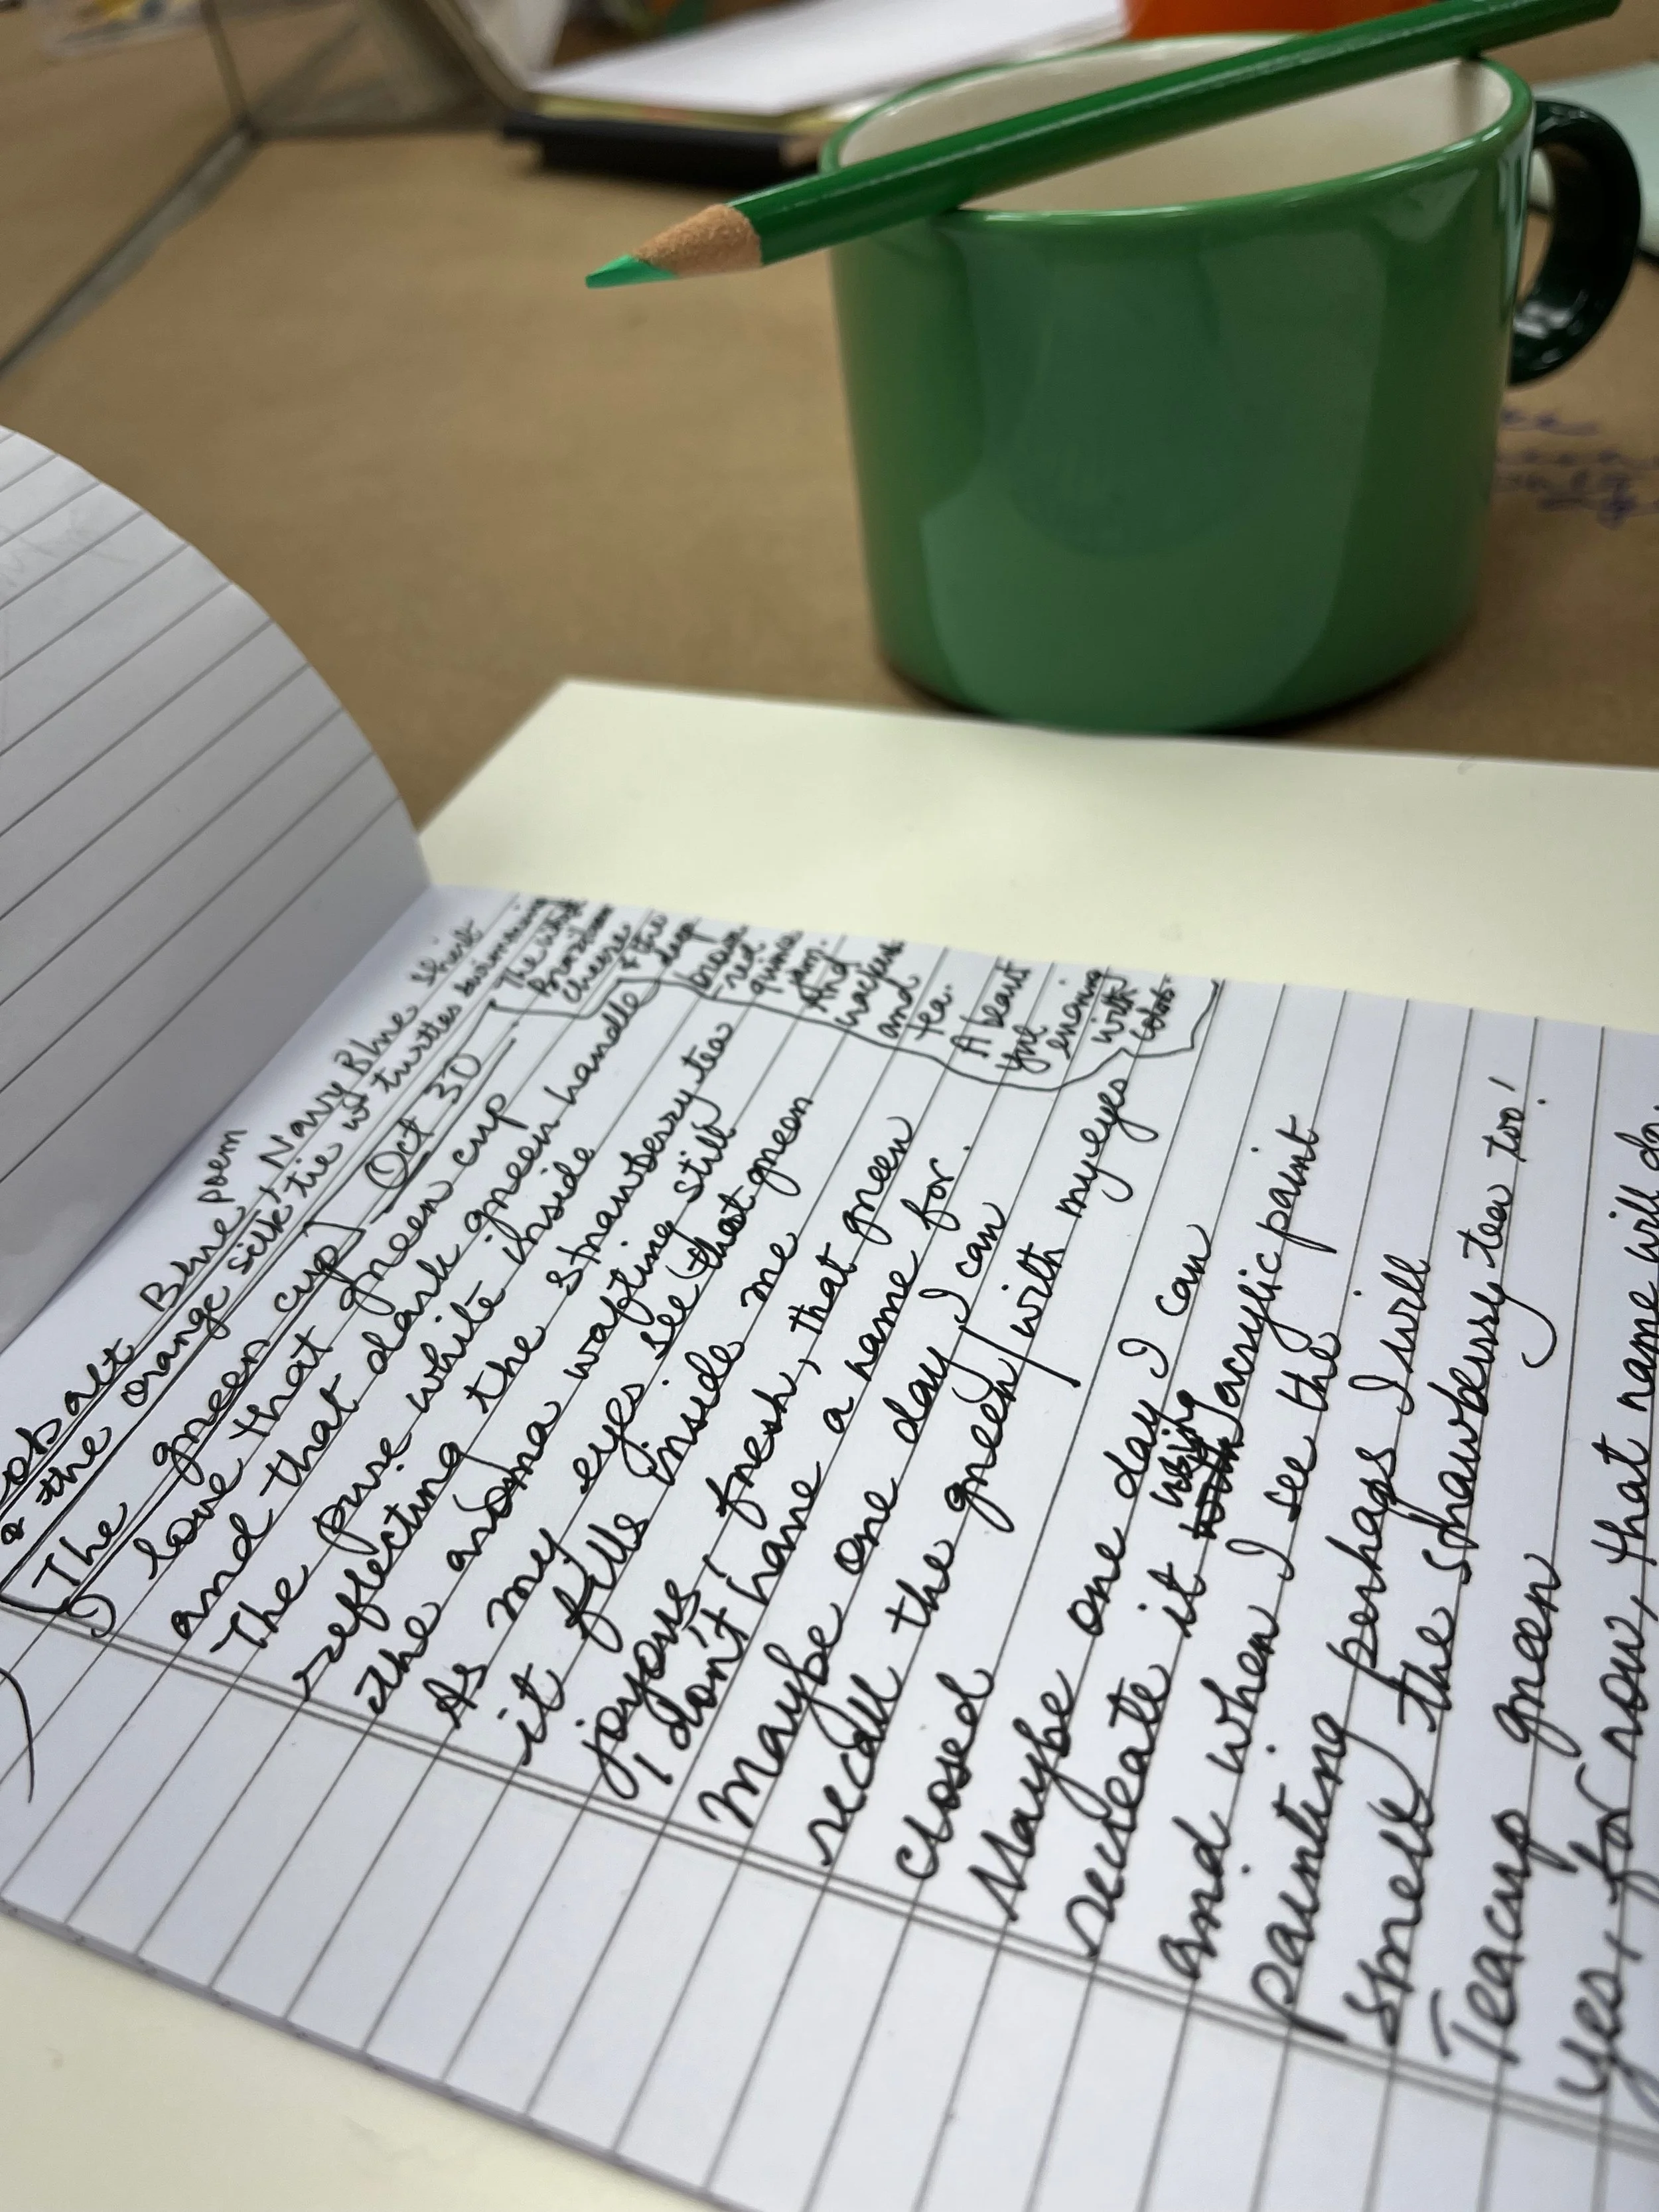 poem
Blue, Navy Blue Shirt
the orange silk tie w/ turtles swimming
The green cup
Oct 30
I love that green cup
and that dark green handle
The pure white inside
reflecting the strawberry tea
the aroma wafting still
As my eyes see that green
it fills inside me
joyous, fresh, that green
I don't have a name for.
Maybe one day I can
recall the green with my eyes
closed
Maybe one day I can
recreate it using acrylic paint
and when I see the
painting perhaps I will
smell the strawberry tea too!
Teacup green
yes, for now, that name will do
The white
Brazilian
cheese
& the
deep
red
quince
jam.
And
crackers
and
tea.
A beast
with
colors.